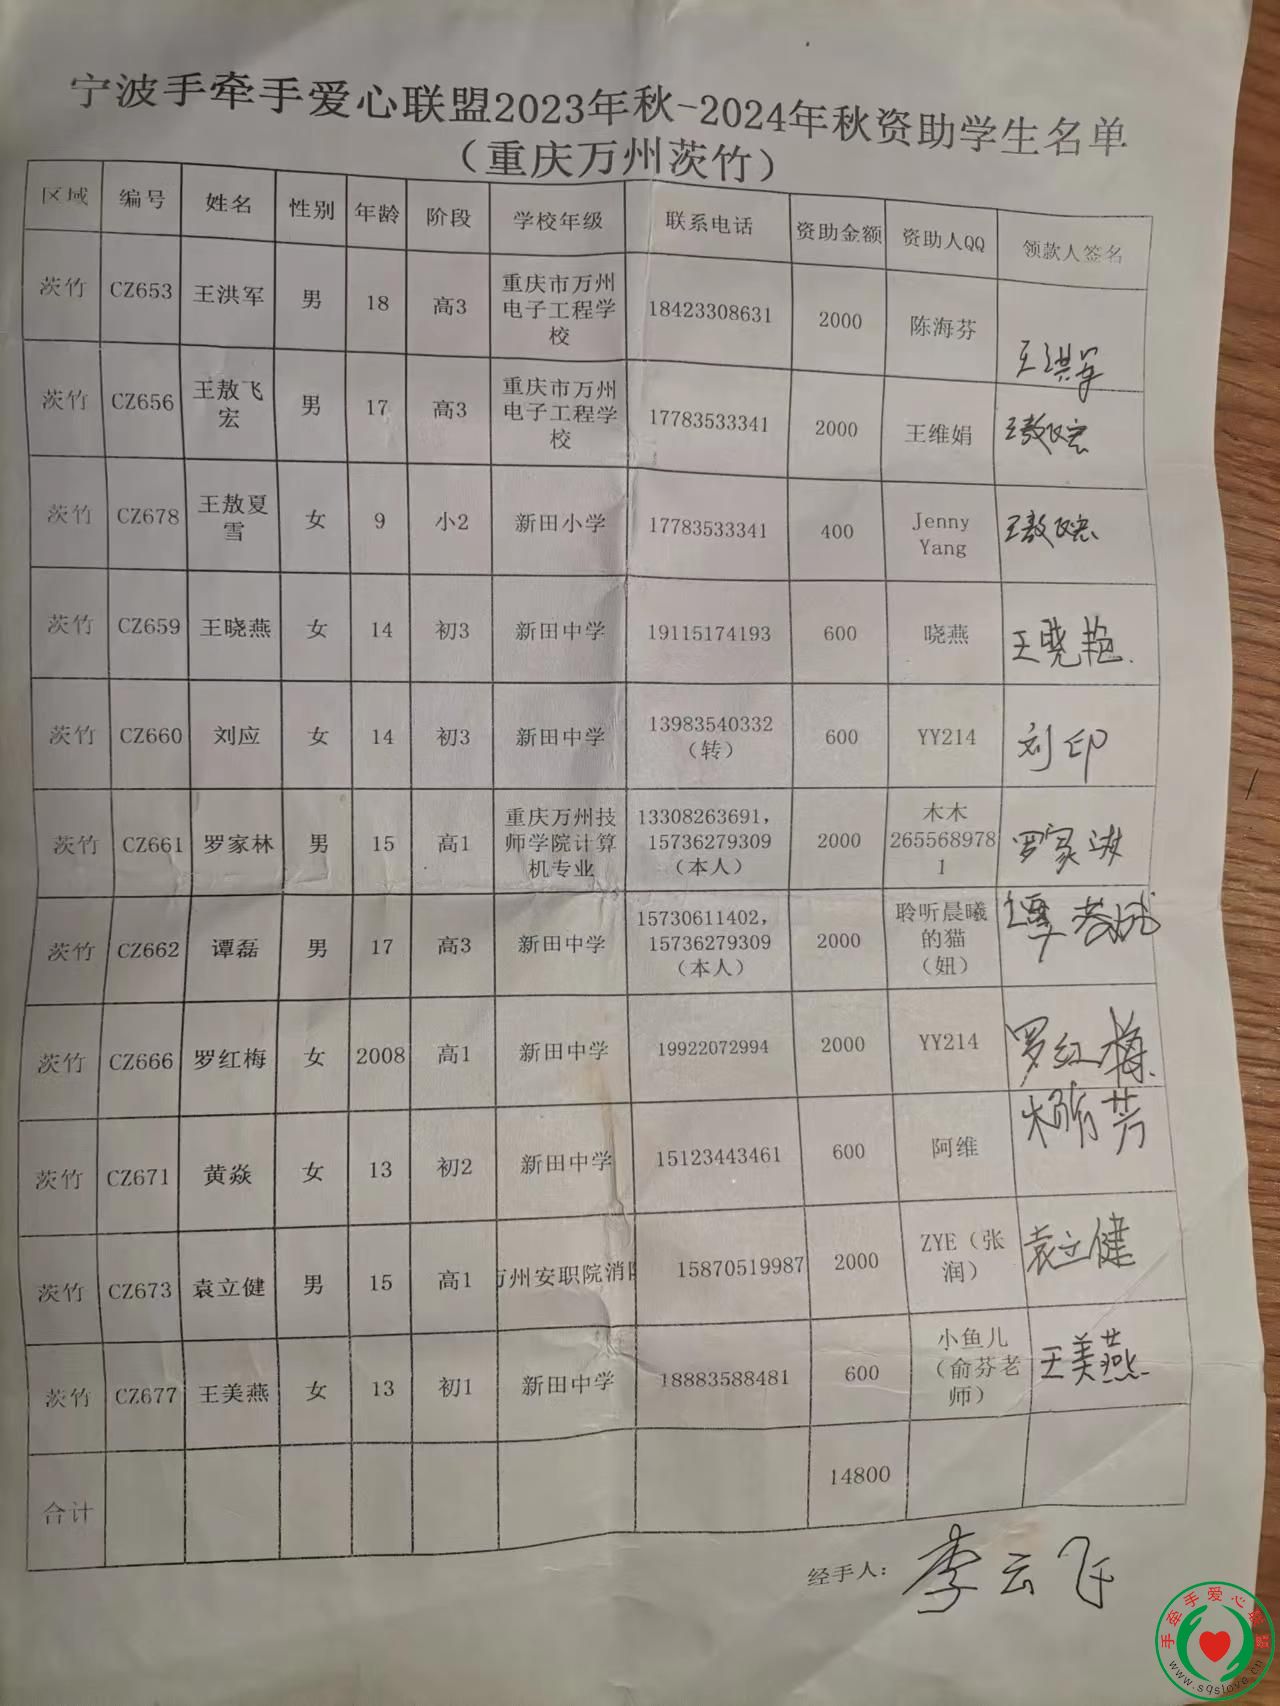 宁波手牵手爱心联盟2023年秋-2024年秋资助学生名单
（重庆万州茨竹）
区域 编号 姓名 性别 年龄 阶段 学校年级 联系电话 资助金额 资助人QQ 领款人签名
茨竹 CZ653 王洪军 男 18 高3 重庆市万州电子工程学校 18423308631 2000 陈海芬 王洪军
茨竹 CZ656 王敖飞宏 男 17 高3 重庆市万州电子工程学校 17783533341 2000 王维娟 王敖飞宏
茨竹 CZ678 王敖夏雪 女 9 小2 新田小学 17783533341 400 Jenny Yang 王敖飞宏
茨竹 CZ659 王晓燕 女 14 初3 新田中学 19115174193 600 晓燕 王晓艳
茨竹 CZ660 刘应 女 14 初3 新田中学 13983540332（转） 600 YY214 刘印
茨竹 CZ661 罗家林 男 15 高1 重庆万州技师学院计算机专业 13308263691，15736279309（本人） 2000 木木2655689781 罗家
茨竹 CZ662 谭磊 男 17 高3 新田中学 15730611402，15736279309（本人） 2000 聆听晨曦的猫（妞） 谭
茨竹 CZ666 罗红梅 女 2008 高1 新田中学 19922072994 2000 YY214 罗红梅
茨竹 CZ671 黄焱 女 13 初2 新田中学 15123443461 600 阿维 芳
茨竹 CZ673 袁立健 男 15 高1 万州安职院消防 15870519987 2000 ZYE（张润） 袁立健
茨竹 CZ677 王美燕 女 13 初1 新田中学 18883588481 600 小鱼儿（俞芬老师） 王美燕
合计 14800
经手人： 李云飞
手牵手爱心联盟
www.sqslove.cn